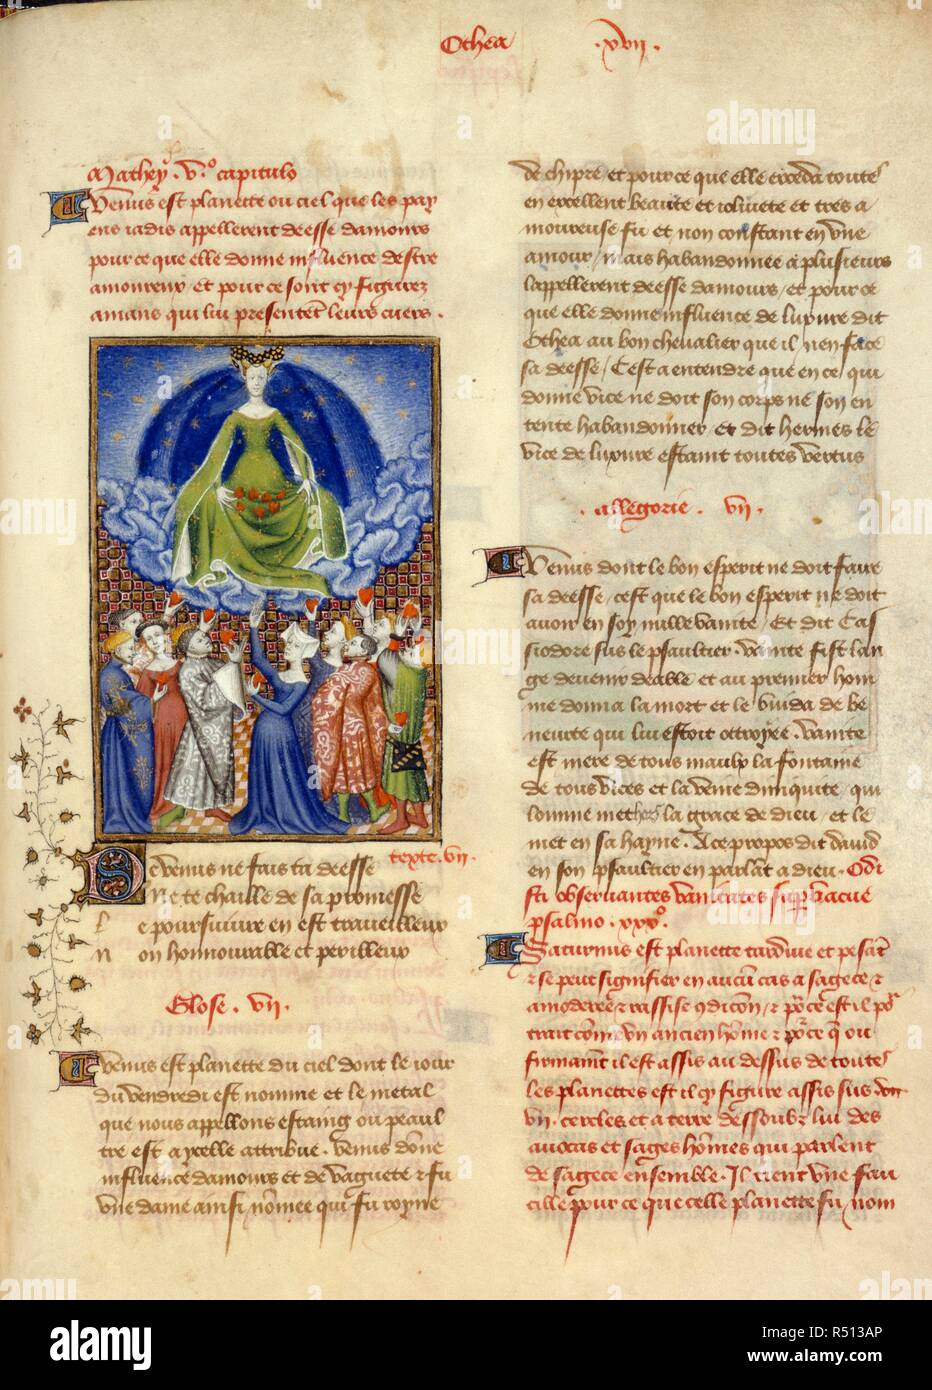 Othea .xvij.
Mathei .v.o capitulo
Venus est planette ou ciel que les pay
ens iadis appellerent deesse damours
pour ce que elle donne influence destre
amoureux et pour ce sont cy figurez
amans qui lui presentent leurs cuers .
texte . vij .
De venus ne fais ta deesse
Ne te chaille de sa promesse
le poursuivre en est traveilleux
non honnourable et perilleux
Glose . vij .
Venus est planette du ciel dont le iour
du vendredi est nomme et le metal
que nous appellons estaing ou peaul
tre est a ycelle attribue . venus donne
influence damours et de vaguete et fu
vne dame ainsi nommee qui fu royne
de chipre / et pour ce que elle exceda toutes
en excellent beaute et ioliuete et tres a
moureuse fu et non constant en vne
amour / mais habandonnee a plusieurs
lappellerent deesse damours / et pour ce
que elle donne influence de luxure dit
Othea au bon chevalier que il nen face
sa deesse / Cest a entendre que en ce qui
donne vice ne doit son corps ne son en
tente habandonner / et dit hermes le
vice de luxure estaint toutes vertus
. allegorie . vij .
Venus dont le bon esperit ne doit faire
sa deesse / cest que le bon esperit ne doit
avoir en soy nulle vanite / Et dit Cas
siodore sus le psaultier . vanite fist lan
ge devenir deable et au premier hom
me donna la mort et le vuida de be
neurte qui lui estoit ottroyee . vanite
est mere de tous maulx la fontaine
de tous vices et la veine diniquite qui
lomme met hors la grace de dieu / et le
met en sa hayne / A ce propos dit david
en son psaultier en parlant a dieu . Odi
sti observantes vanitates supervacue
psalmo . xxx.o
Saturnus est planette tardive et pesant
et se peut signifier en aucun cas a sagece et
amoderee et rassise condicion / et pour ce est il pour
trait comme vn ancien homme et pour ce que ou
firmament il est assis au dessus de toutes
les planettes est il cy figure assis sus
vij . cercles et a terre dessoubz lui des
avocas et sages hommes qui parlent
de sagece ensemble . Il tient vne fau
cille pour ce que celle planette fu nom
alamy
Image ID: R513AP
www.alamy.com